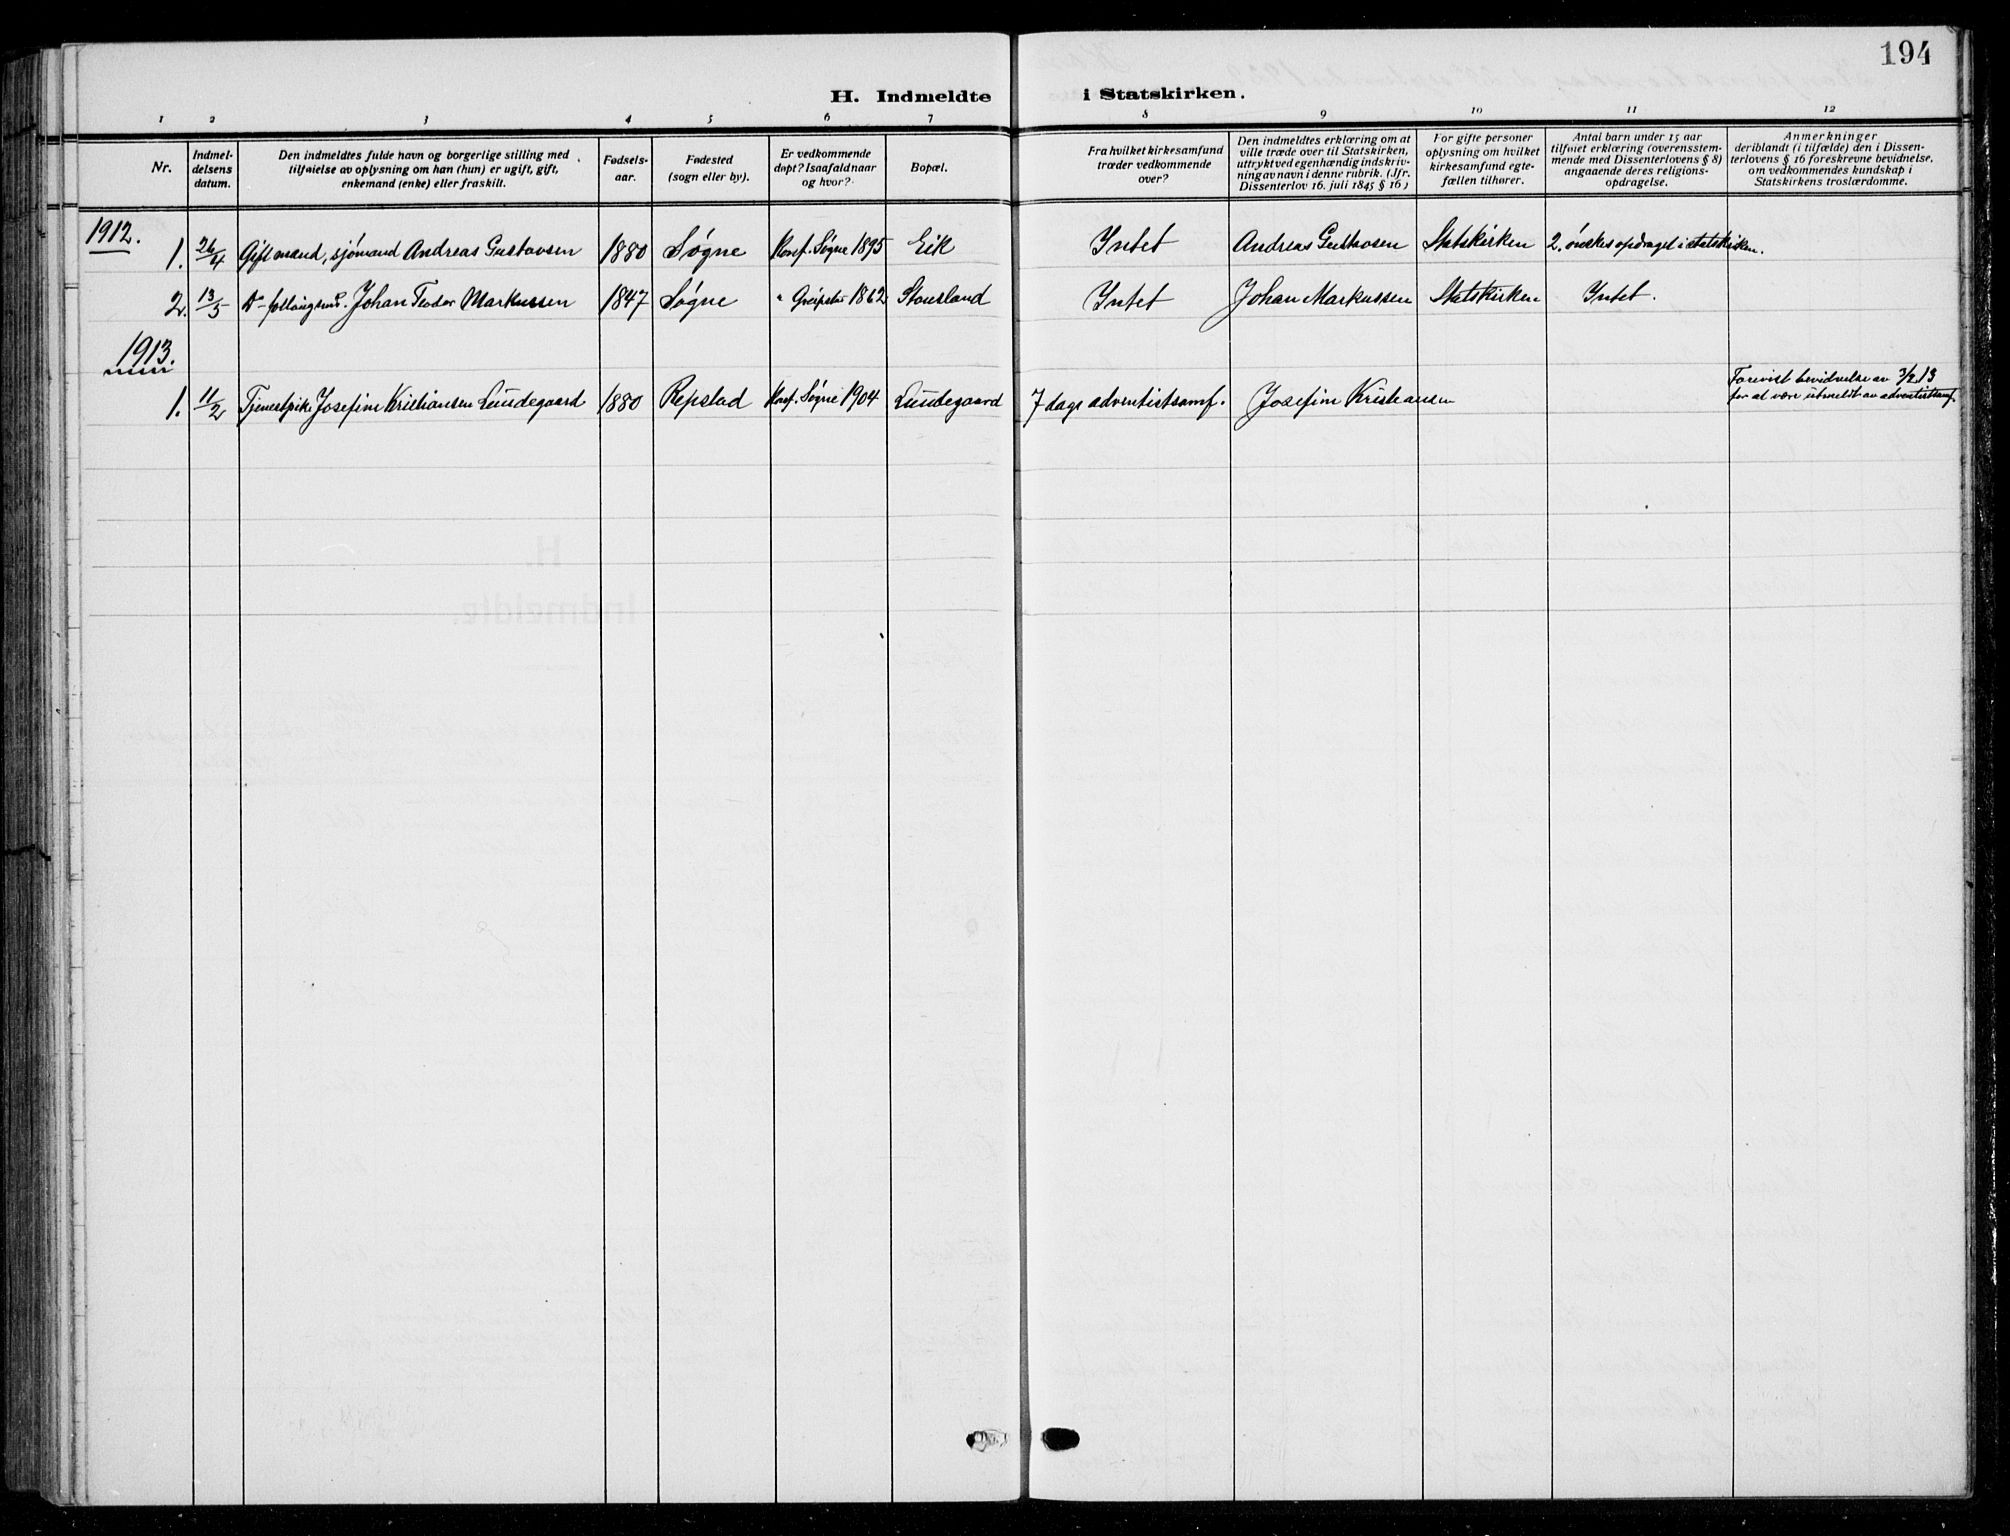 194
H. Indmeldte i Statskirken.
1 2 3 4 5 6 7 8 9 10 11 12
Nr.
Indmel-
delsens
datum.
Den indmeldtes fulde navn og borgerlige stilling med
tilføielse av oplysning om han (hun) er ugift, gift,
enkemand (enke) eller fraskilt.
Fødsels-
aar.
Fødested
(sogn eller by).
Er vedkommende
døpt? Isaafald naar
og hvor?
Bopæl.
Fra hvilket kirkesamfund
træder vedkommende
over?
Den indmeldtes erklæring om at
ville træde over til Statskirken,
uttrykt ved egenhændig indskriv-
ning av navn i denne rubrik. (Jfr.
Dissenterlov 16. juli 1845 § 16)
For gifte personer
oplysning om hvilket
kirkesamfund egte-
fællen tilhører.
Antal barn under 15 aar
tilføiet erklæring (overensstem-
mende med Dissenterlovens § 8)
angaaende deres religions-
opdragelse.
Anmerkninger
deriblandt (i tilfælde) den i Dissen-
terlovens § 16 foreskrevne bevidnelse,
om vedkommendes kundskap i
Statskirkens troslærdomme.
1912.
1. 26/4 Gift mand, sjømand Andreas Gustavsen 1880 Søgne Konf. Søgne 1895 Eik Intet Andreas Gustavsen Statskirken 2. ønskes opdraget i statskirken.
2. 13/5 Johan Teodor Markussen 1847 Søgne " Greipstad 1862 Stousland Intet Johan Markussen Statskirken Intet.
1913.
1. 11/2 Tjenestpike Josefine Kristiansen Lundegaard 1880 Repstad Konf. Søgne 1904 Lundegaard 7 dags adventistsamf. Josefine Kristiansen
Forevist bevidnelse av 3/2 13
for at være utmeldt av adventistsamf.
H.
Indmeldte.